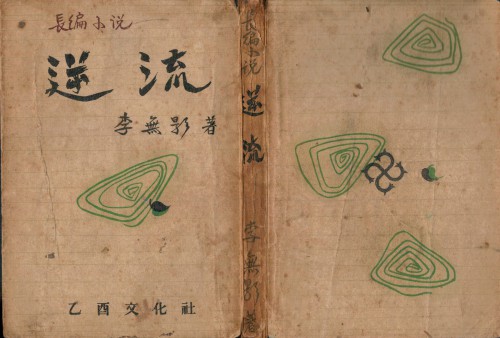 長編小说
逆流
李無影著
乙酉文化社
長編小说 逆流 李無影著